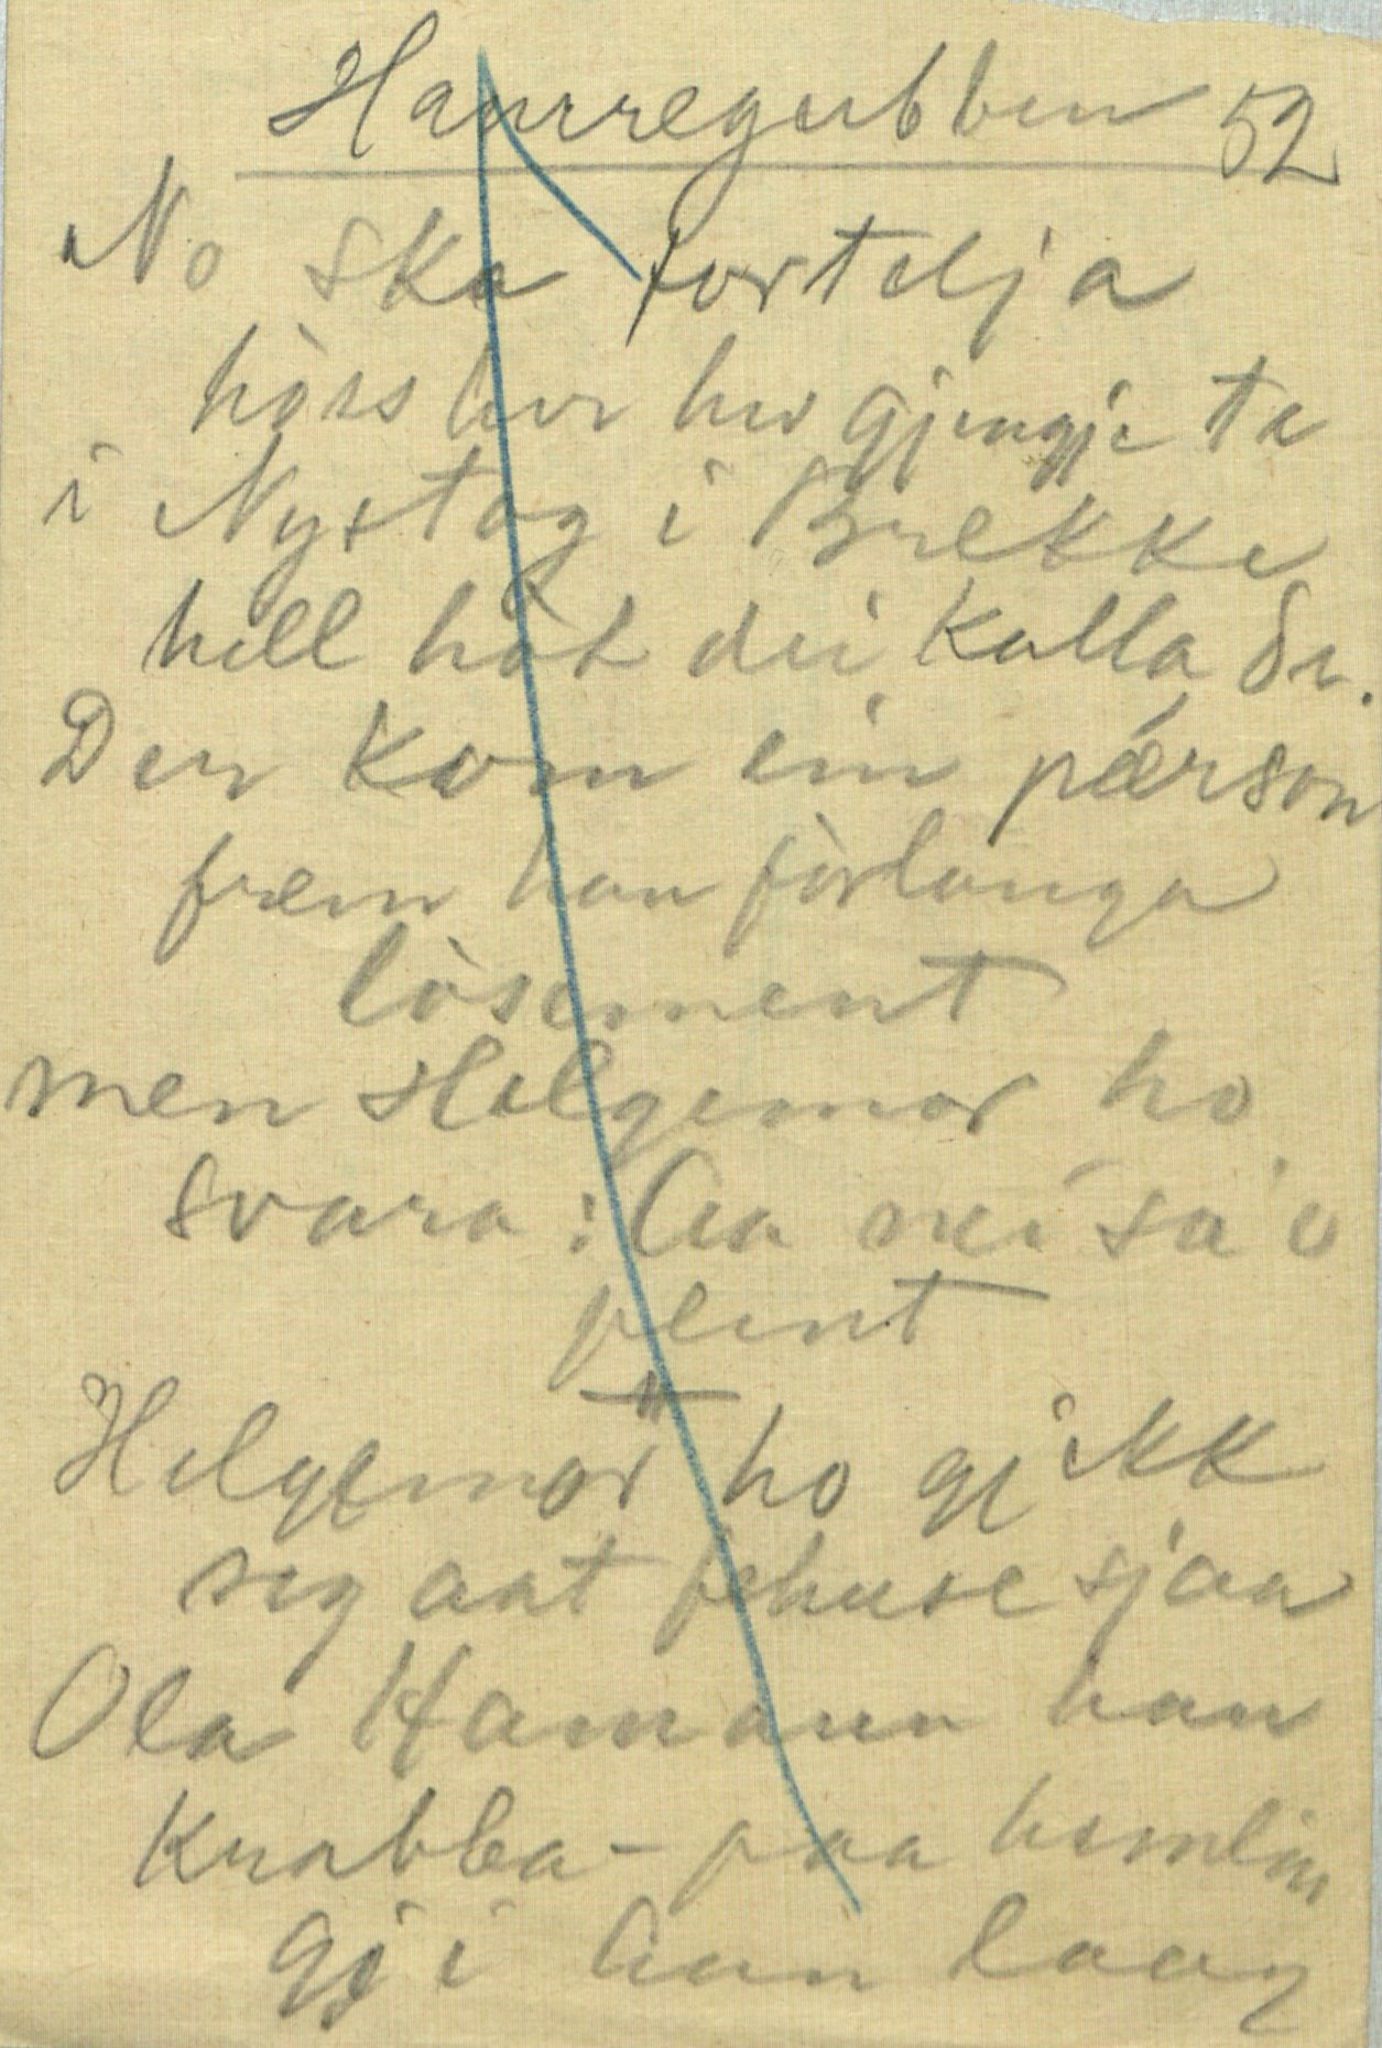 Haurregubben 52
No ska fortelja
hòss hor hu gjengje ta
i Nystog i Brekke
hell hòt dei kalla de.
Der kom ein pærson
frem han fòrlanga
lòsement
men Helgemor ho
svara: Aa nei sa o
peint
Helgemor ho gjikk
seg aat fehuse sjaa
Ola Hamann han
knabba - paa hemlin
gji han laag